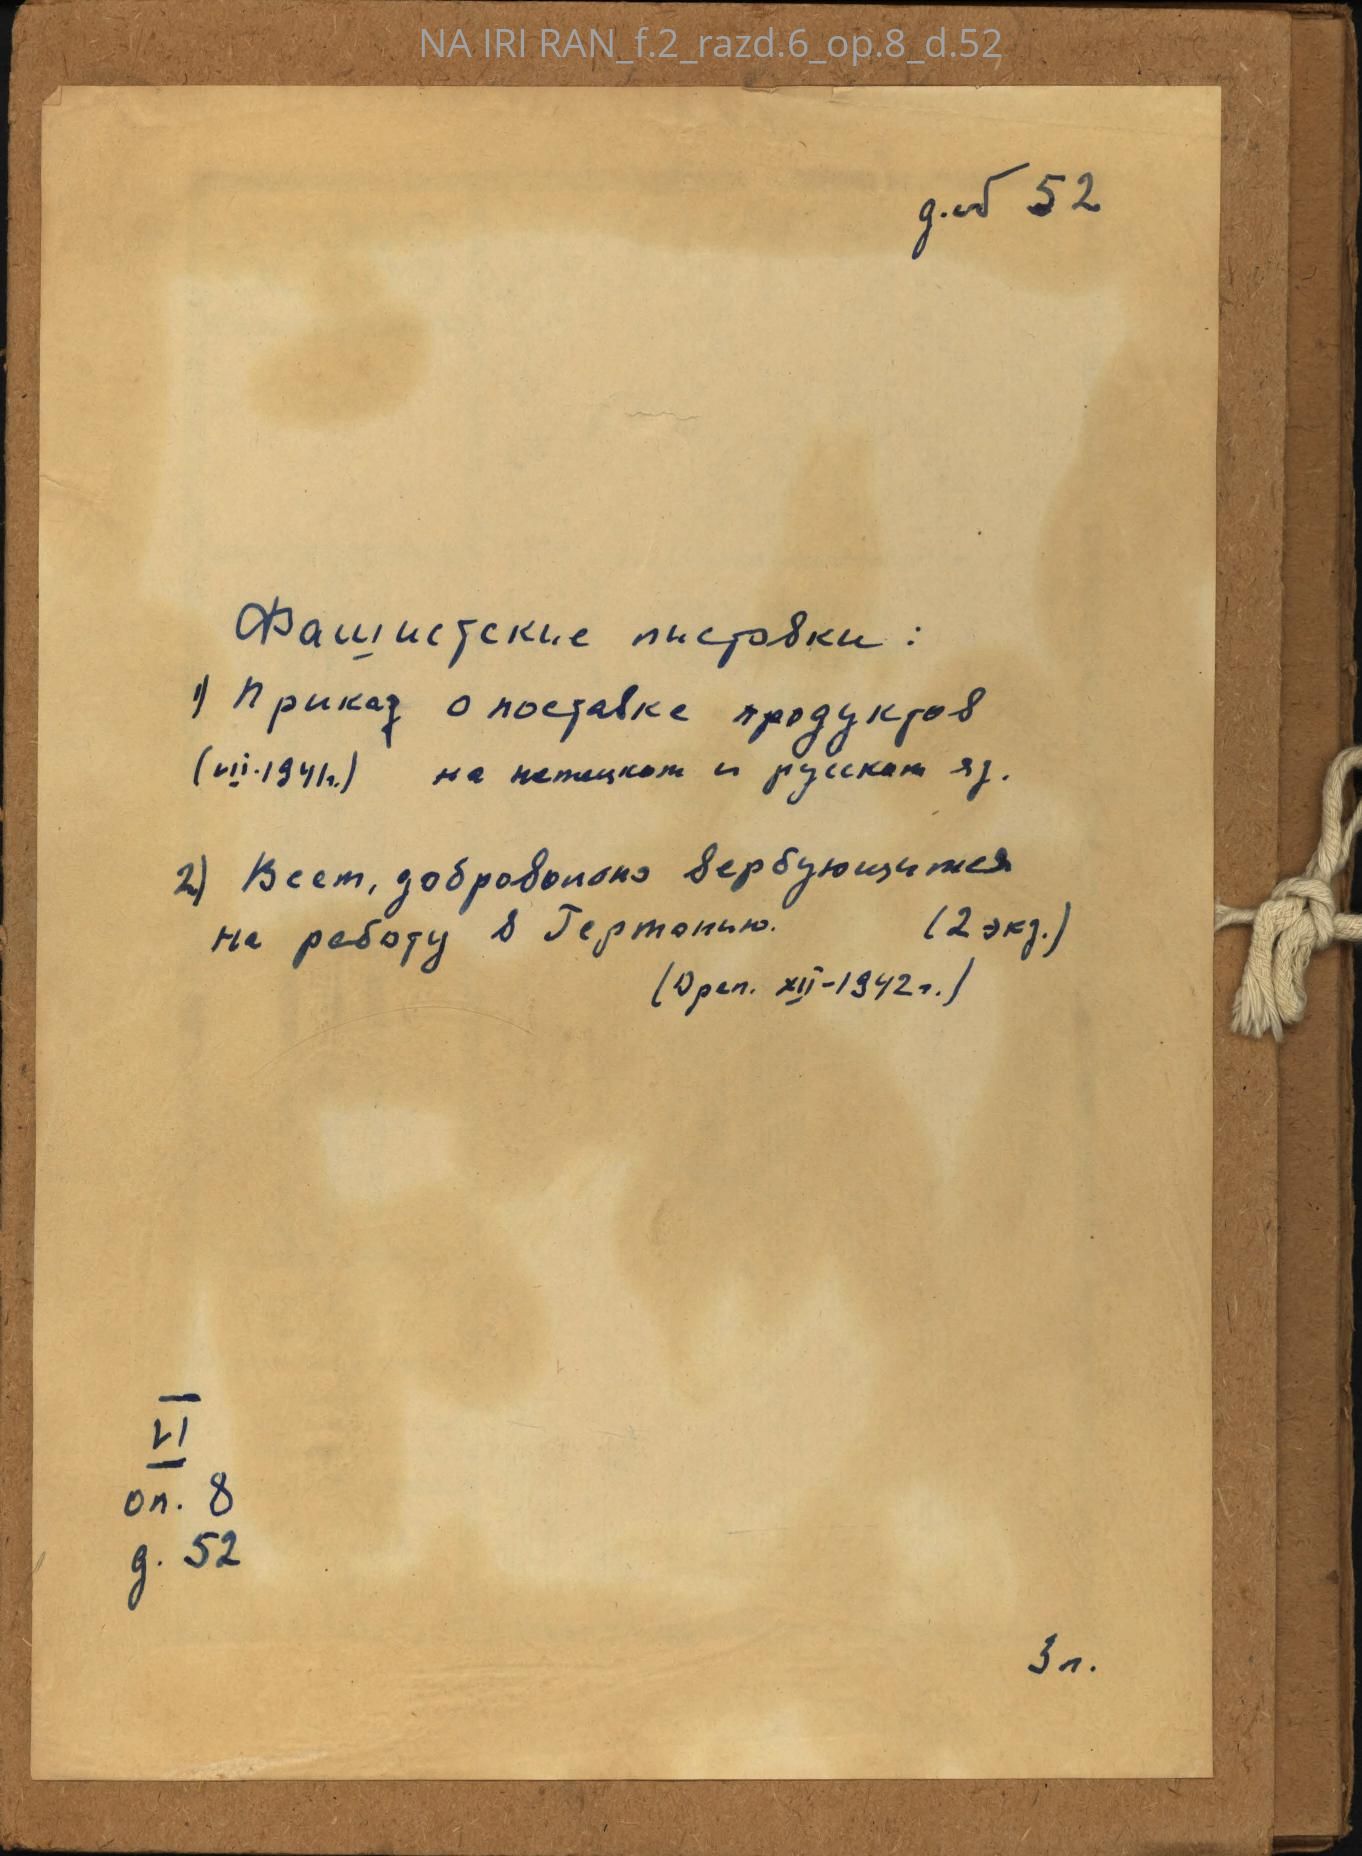 NA IRI RAN_f.2_razd.6_op.8_d.52
д. 52
Фашистские листовки:
1) Приказ о поставке продуктов
(VIII-1941г.) на немецком и русском яз.
2) Всем, добровольно вербующимся
на работу в Германию. (2 экз.)
(Орел. XII-1942г.)
VI
оп. 8
д. 52
3 л.